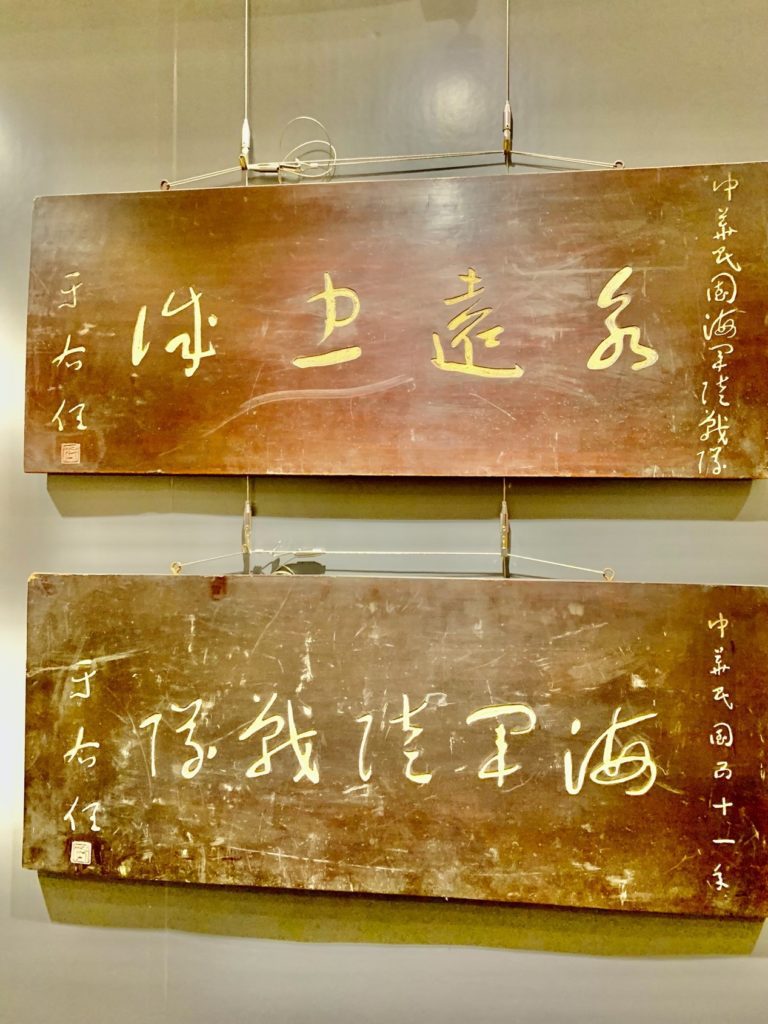 中華民國海軍陸戰隊
永遠忠誠
于右任
中華民國五十一年
海軍陸戰隊
于右任